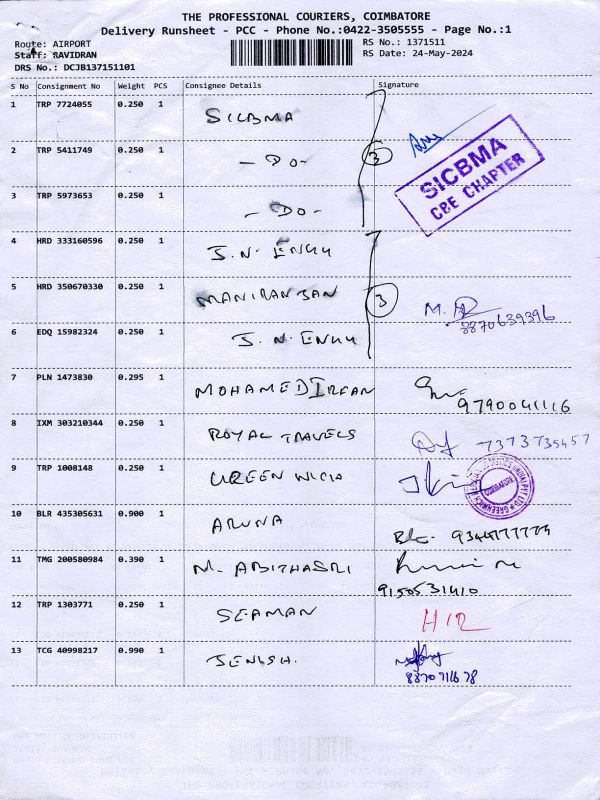 THE PROFESSIONAL COURIERS, COIMBATORE
Delivery Runsheet - PCC - Phone No.:0422-3505555 - Page No.:1
Route: AIRPORT RS No.: 1371511
Staff: RAVIDRAN RS Date: 24-May-2024
DRS No.: DCJB137151101
S No Consignment No Weight PCS Consignee Details Signature
1 TRP 7724055 0.250 1 SICBMA
2 TRP 5411749 0.250 1 - DO - 3
SICBMA
CBE CHAPTER
3 TRP 5973653 0.250 1 - DO -
4 HRD 333160596 0.250 1 J. N. ENGG
5 HRD 350670330 0.250 1 MANIRANJAN 3 M.
8870639396
6 EDQ 15982324 0.250 1 J. N. ENGG
7 PLN 1473830 0.295 1 MOHAMEDIRFAN
9790041116
8 IXM 303210344 0.250 1 ROYAL TRAVELS 7373735457
9 TRP 1008148 0.250 1 GREEN
COIMBATORE
10 BLR 435305631 0.900 1 ARUNA
11 TMG 200580984 0.390 1 M. ABITHASRI
9150531410
12 TRP 1303771 0.250 1 SEAMAN
13 TCG 40998217 0.990 1 JENISH.
8870711678